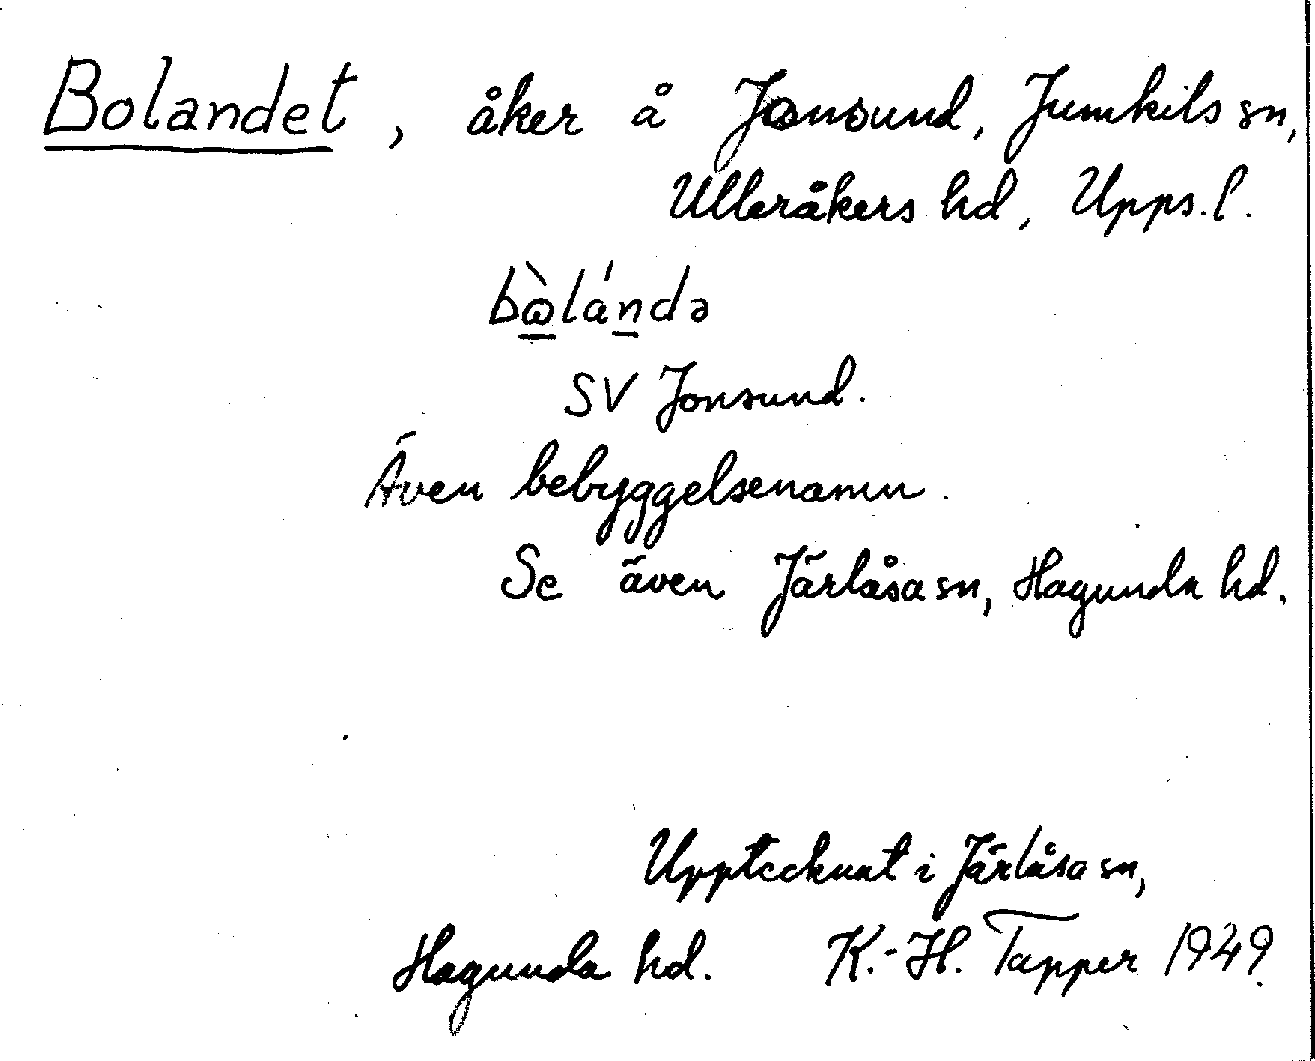 Bolandet, åker å Jonsund, Jumkils sn,
Ulleråkers hd, Upps. l.
bὼlándə
SV Jonsund.
Även bebyggelsenamn.
Se även Järlåsa sn, Hagunda hd.
Upptecknat i Järlåsa sn,
Hagunda hd. K.-H. Tapper 1949.